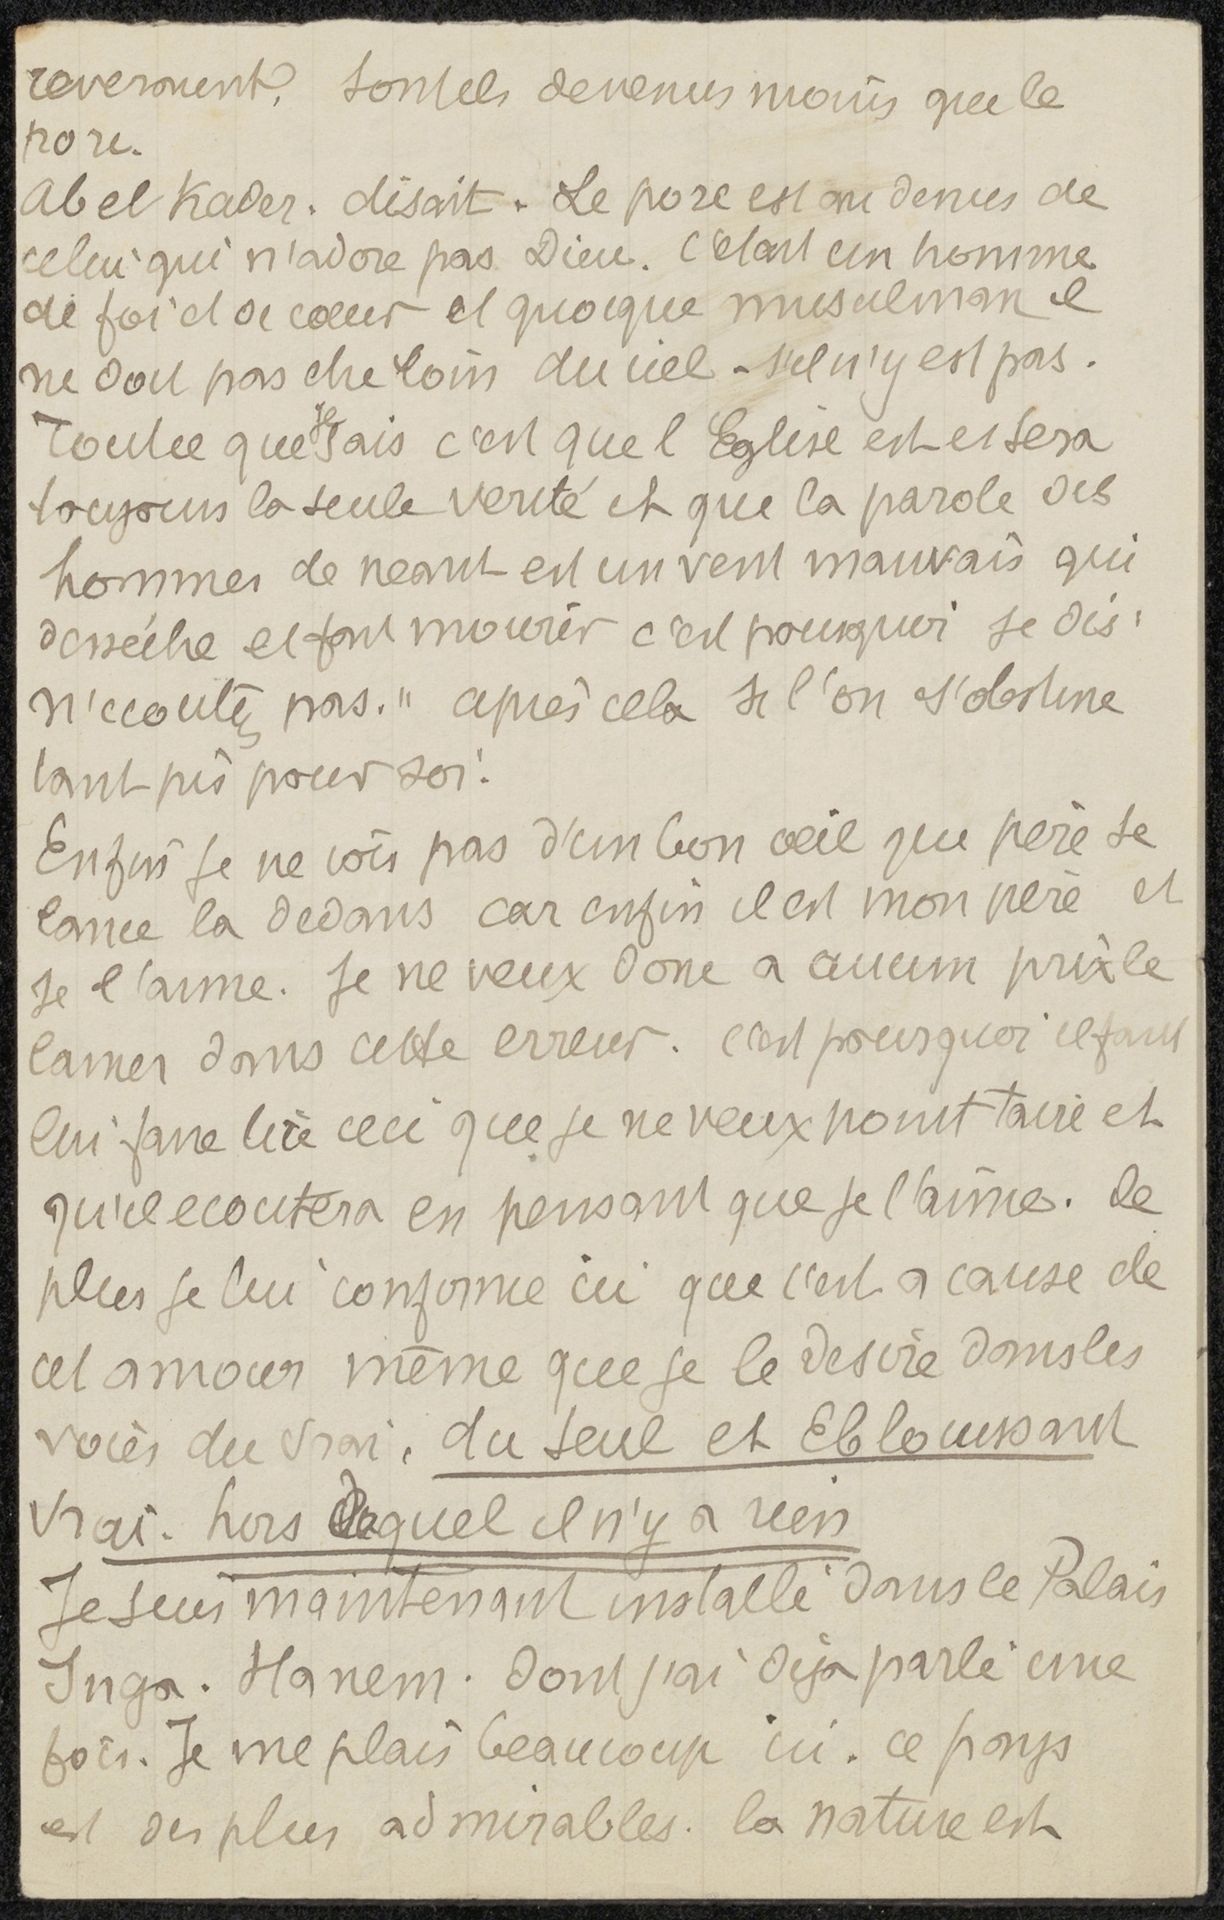 reverront, sontils devenus moins que le
porc.
Abel Kader. disait. Le porc est au dessus de
celui qui n'adore pas Dieu. C'etait un homme
de foi et de cœur et quoique musulman il
ne doit pas etre loin du ciel - s'il n'y est pas.
Toutce que je sais c'est que l Eglise est et sera
toujours la seule verité et que la parole des
hommes de neant est un vent mauvais qui
desséche et fait mourir c'est pourquoi je dis:
n'ecoutez pas." après cela si l'on s'obstine
tant pis pour soi.
Enfin je ne vois pas d'un bon œil que père se
lance la dedans car enfin il est mon père et
je l'aime. je ne veux donc a aucun prix le
laisser dans cette erreur. c'est pourquoi il faut
lui faire lire ceci que je ne veux point taire et
qu'il ecoutera en pensant que je l'aime. de
plus je lui confirme ici que c'est a cause de
cet amour même que je le desire dans les
voies du vrai, du seul et Eblouissant
vrai. hors duquel il n'y a rien
Je suis maintenant installé dans le Palais
Inga. Hanem. dont j'ai déja parlé une
fois. Je me plais beaucoup ici. ce pays
est des plus admirables. la nature est